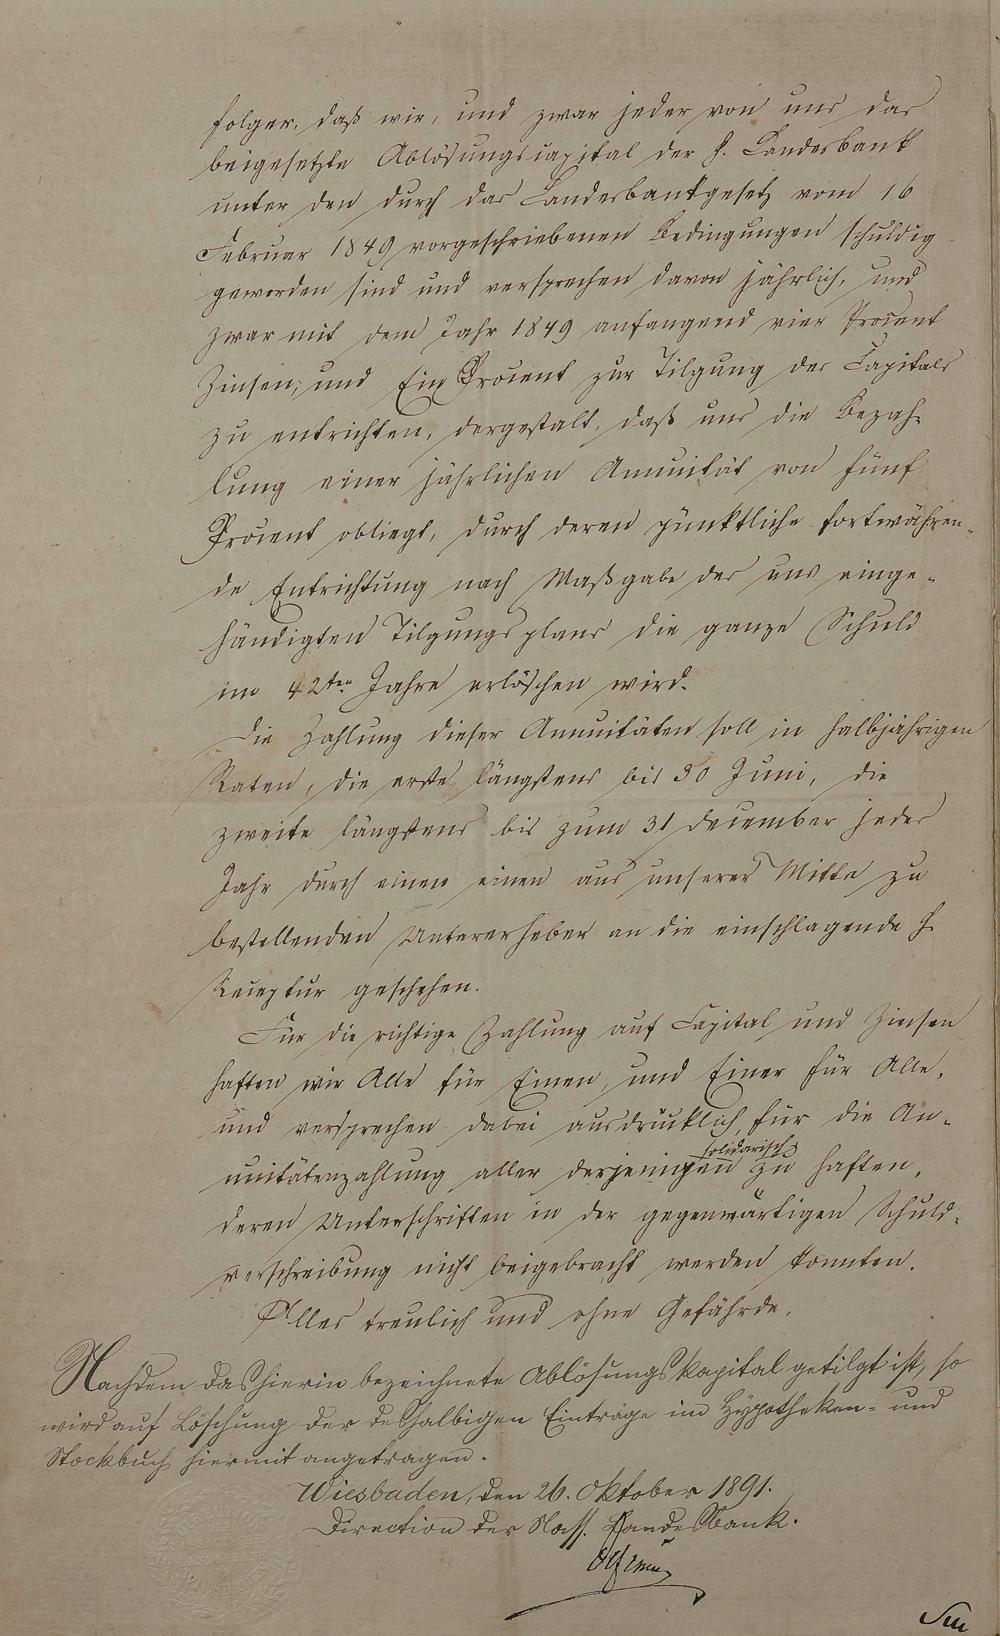 folger, daß wir, und zwar jeder von uns das
beigesetzte Ablösungscapital der H. Landesbank
unter den durch das Landesbankgesetz vom 16
Februar 1849 vorgeschriebenen Bedingungen schuldig
geworden sind und versprechen davon jährlich, und
zwar mit dem Jahr 1849 anfangend vier Procent
Zinsen, und Ein Procent zur Tilgung des Capitals
zu entrichten, dergestalt, daß uns die Bezah-
lung einer jährlichen Annuität von fünf
Procent obliegt, durch deren pünktliche fortwähren-
de Entrichtung nach Maßgabe des uns einge-
händigten Tilgungsplans die ganze Schuld
im 42ten Jahre erlöschen wird.
Die Zahlung dieser Annuitäten soll in halbjährigen
Raten, die erste längstens bis 30 Juni, die
zweite längstens bis zum 31 December jedes
Jahr durch einen einen aus unserer Mitte zu
bestellenden Untererheber an die einschlagende H.
Receptur geschehen.
Für die richtige Zahlung auf Capital und Zinsen
haften wir Alle für Einen, und Einer für Alle,
und versprechen dabei ausdrücklich, für die An-
solidarisch
nuitätenzahlung aller derjenigen zu haften,
deren Unterschriften in der gegenwärtigen Schuld-
verschreibung nicht beigebracht werden konnten.
Alles treulich und ohne Gefährde.
Nachdem das hierin bezeichnete Ablösungskapital getilgt ist, so
wird auf Löschung der deshalbigen Einträge im Hypotheken- und
Stockbuch hiermit angetragen.
Wiesbaden, den 26. Oktober 1891.
Direction der Nass. Landesbank.